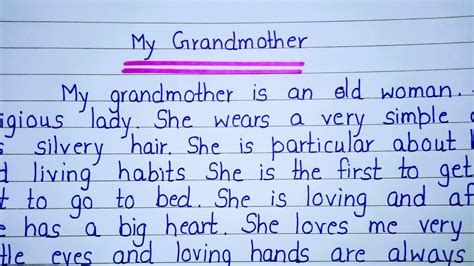 My Grandmother
My grandmother is an old woman.
igious lady. She wears a very simple
silvery hair. She is particular about
living habits She is the first to get
to go to bed. She is loving and af
has a big heart. She loves me very
tle eyes and loving hands are always